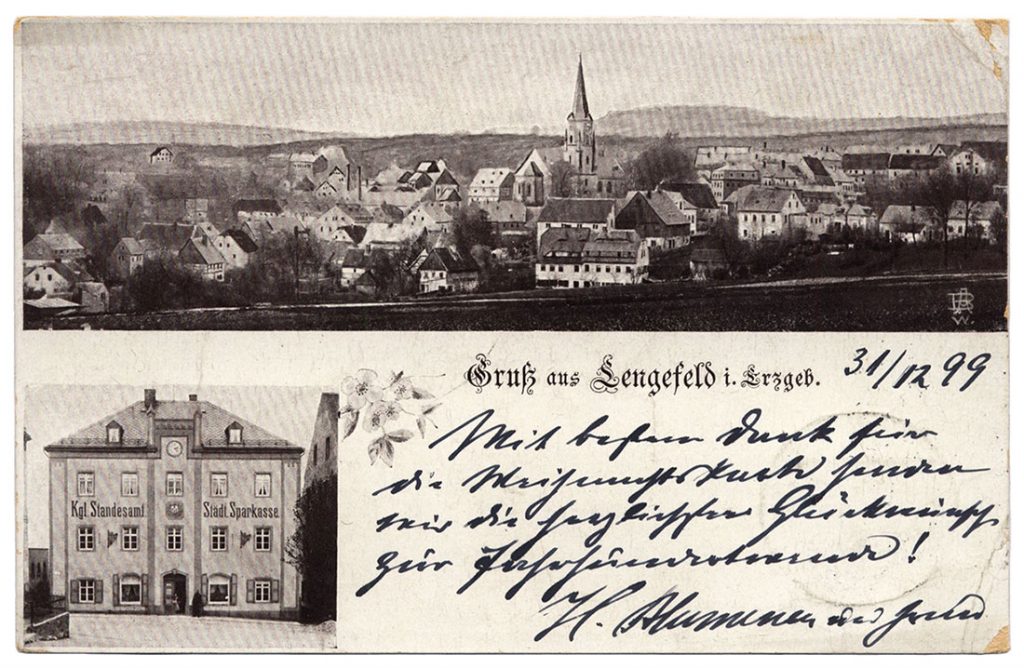 Gruß aus Lengefeld i. Erzgeb.
31/12 99
Kgl. Standesamt.
Städt. Sparkasse.
Mit bestem Dank für
die Weihnachtskarte senden
wir die herzlichsten Glückwünsche
zur Jahrhundertwende!
H. und